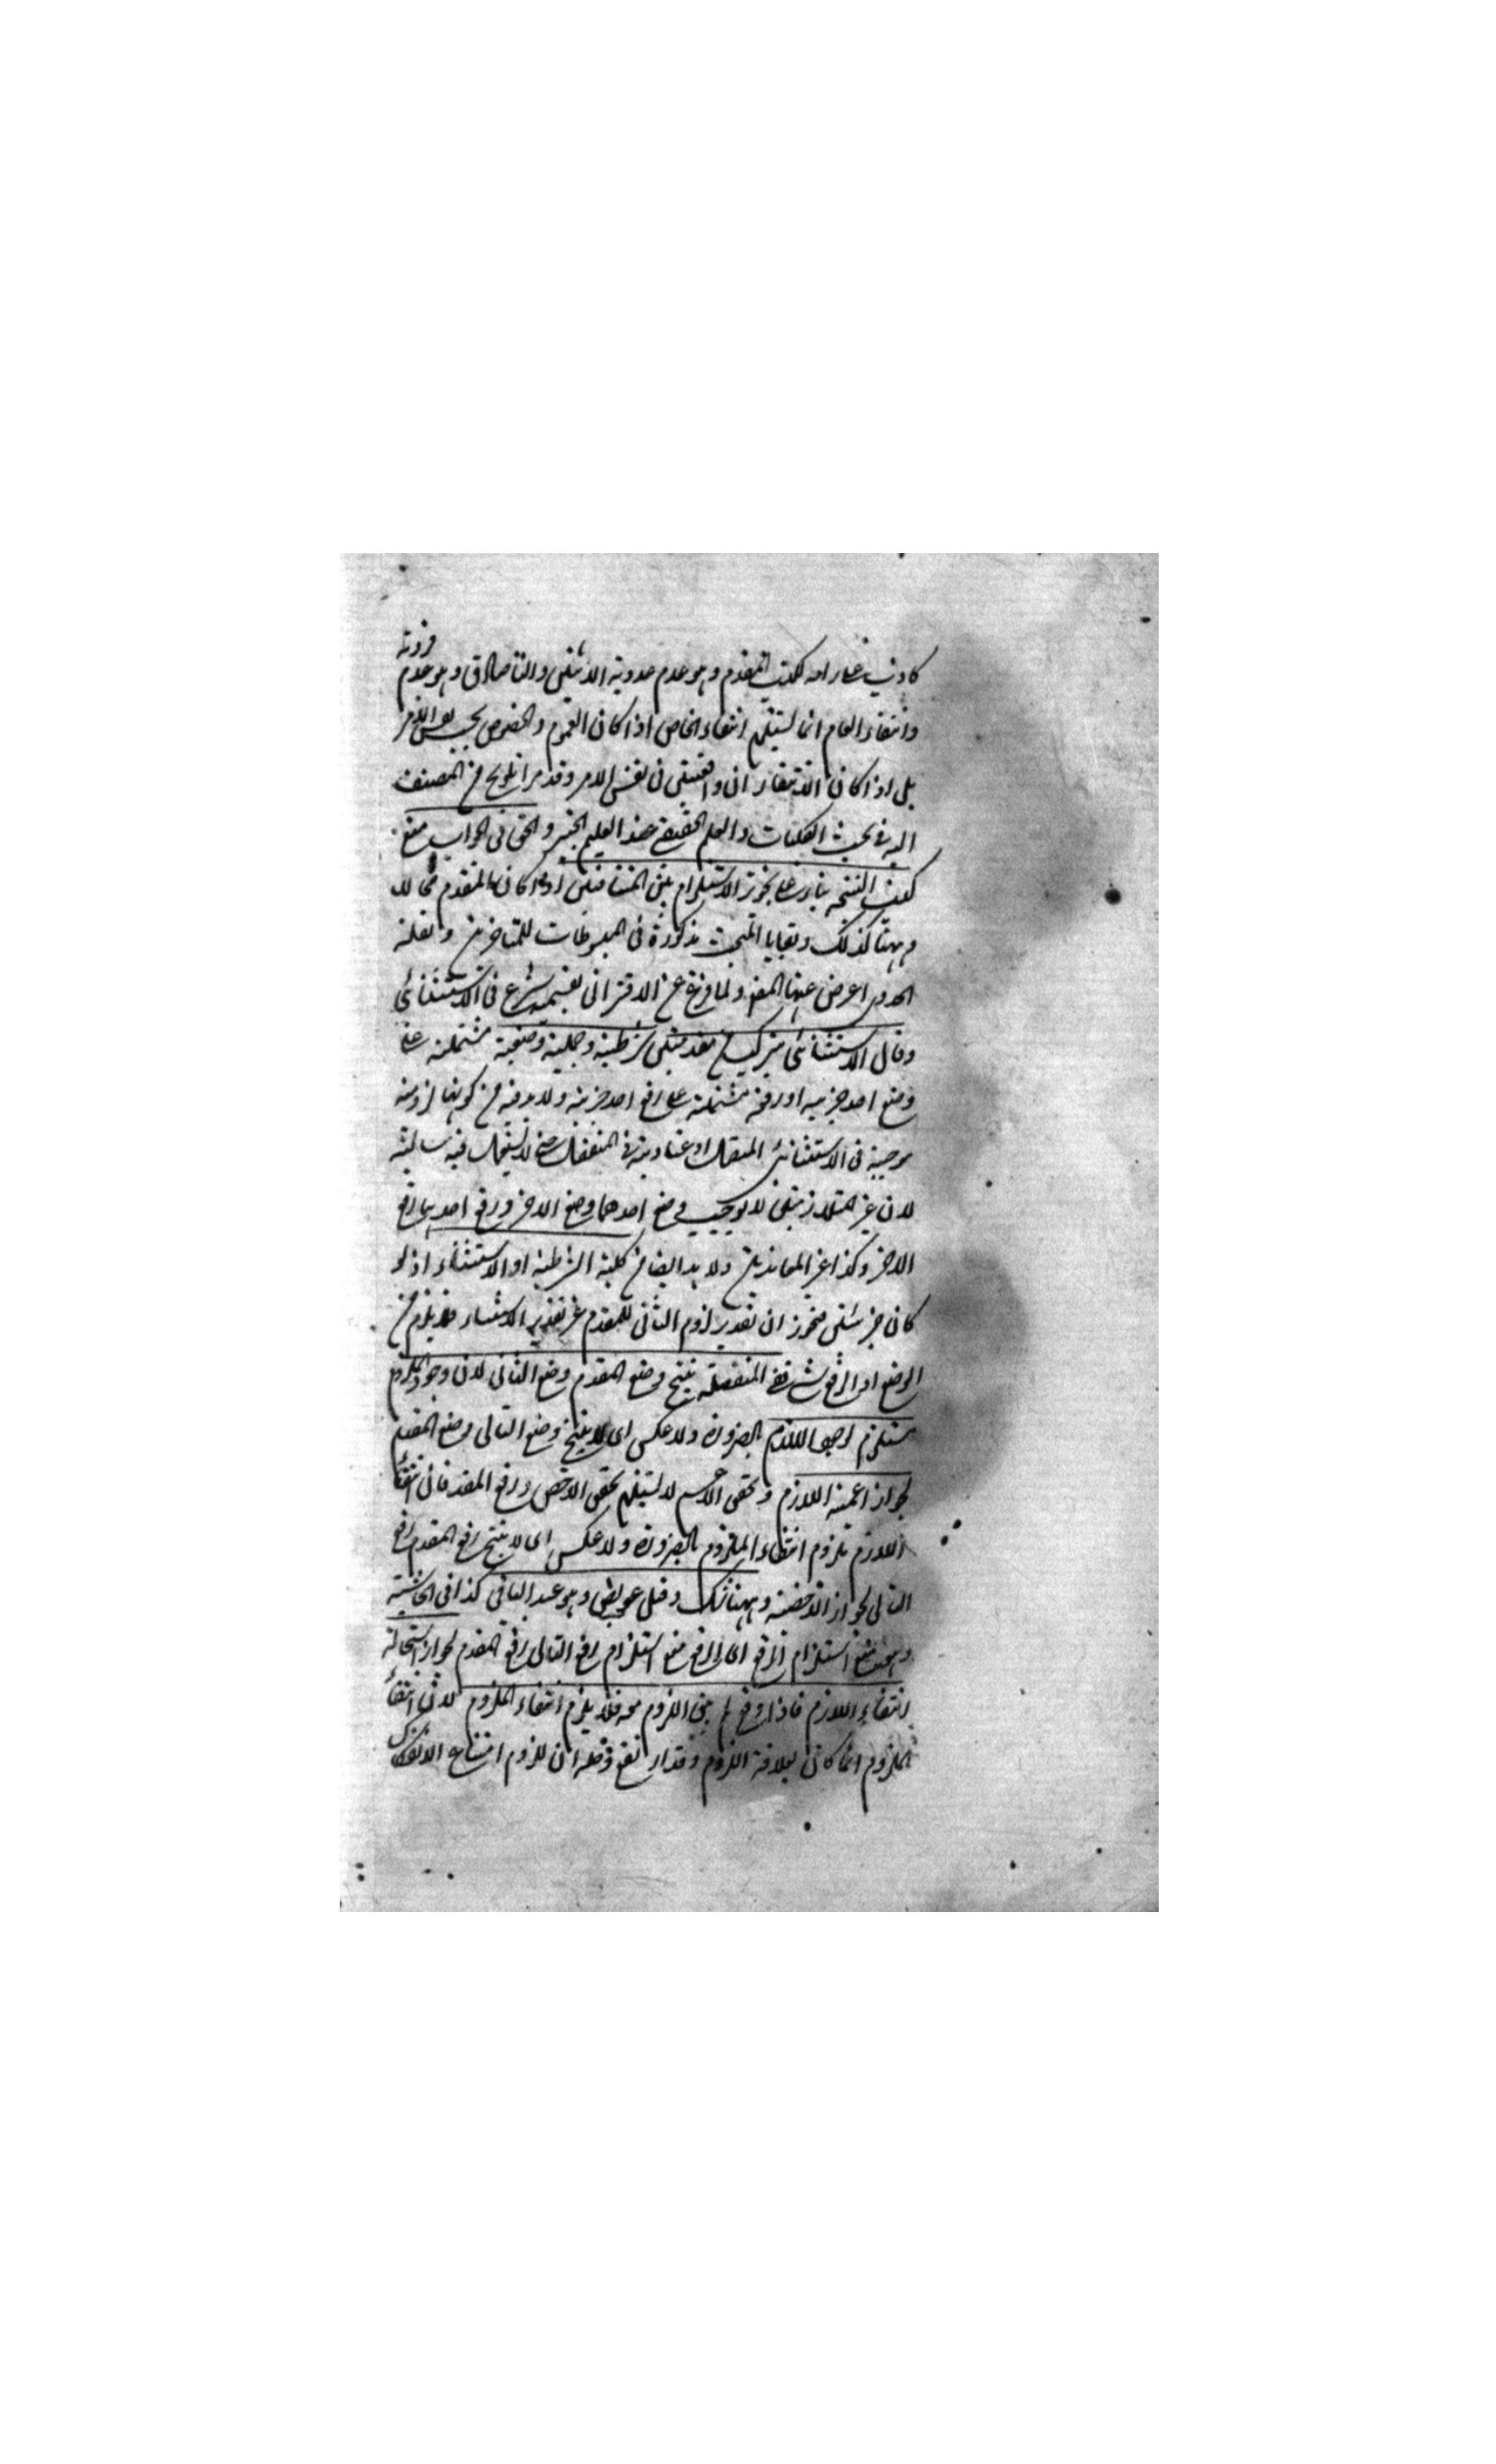 كاذب عدديته الاثنين والتا صادق وهو عدم فرديته
وانتفاء العام انما يستلزم انتفاء الخاص اذا كان العموم والخصوص بحسب
بل اذا كان الانتفاء ان واقعيتين فى نفس الامر وقد مر تلويح من المصنف
اليه فى بحث الكليات والعلم الحقيقى عند العليم الخبير والحق فى الجواب منع
كذب النتيجة بناء على تجويز الاستلزام بين المتنافيين اذا كان المقدم محالا
وههنا كذلك وبقايا المبحث مذكورة فى المبسوطات للمتاخرين ولقلة
الجدوى اعرض عنها المصنف ولما فرغ عن الاقترانى بقسميه شرع فى الاستثنائى
وقال الاستثنائى يتركب من مقدمتين شرطية وحملية وضعية مشتملة على
وضع احد جزئيه او رفعية مشتملة على رفع احد جزئيه ولا بد فيه من كونها لزومية
موجبة فى الاستثنائى المتصل او عنادية فى المنفصل حتى لا يستعمل فيه سالبة
لان غير المتلازمين لا يوجب وضع احدهما وضع الاخر ورفع احدهما رفع
الاخر وكذا غير المعاندين ولا بد ايضا من كلية الشرطية او الاستثناء اذ لو
كان جزئيتين فيجوز ان تقدير لزوم التالى للمقدم غير تقدير الاستثناء فلا يلزم من
الوضع او الرفع شئ ففى المتصلة ينتج وضع المقدم وضع التالى لان وجود الملزوم
مستلزم لوجود اللازم بالضرورة ولا عكس اى لا ينتج وضع التالى وضع المقدم
لجواز اعمية اللازم وتحقق الاعم لا يستلزم تحقق الاخص ورفع المقدم فان انتفاء
اللازم يلزم انتفاء الملزوم بالضرورة ولا عكس اى لا ينتج رفع المقدم رفع
التالى لجواز اخصية وههنا شك وقيل عويص وهو عبد الباقى كذا فى الحاشية
وهو منع استلزام الرفع اى الرفع منع استلزام رفع التالى رفع المقدم لجواز استحالة
انتفاء اللازم فاذا وقع لم يبق اللزوم معه فلا يلزم انتفاء الملزوم لان انتفاء
الملزوم انما كان لعلاقة اللزوم وقد ارتفع وحله ان اللزوم امتناع الانفكاك